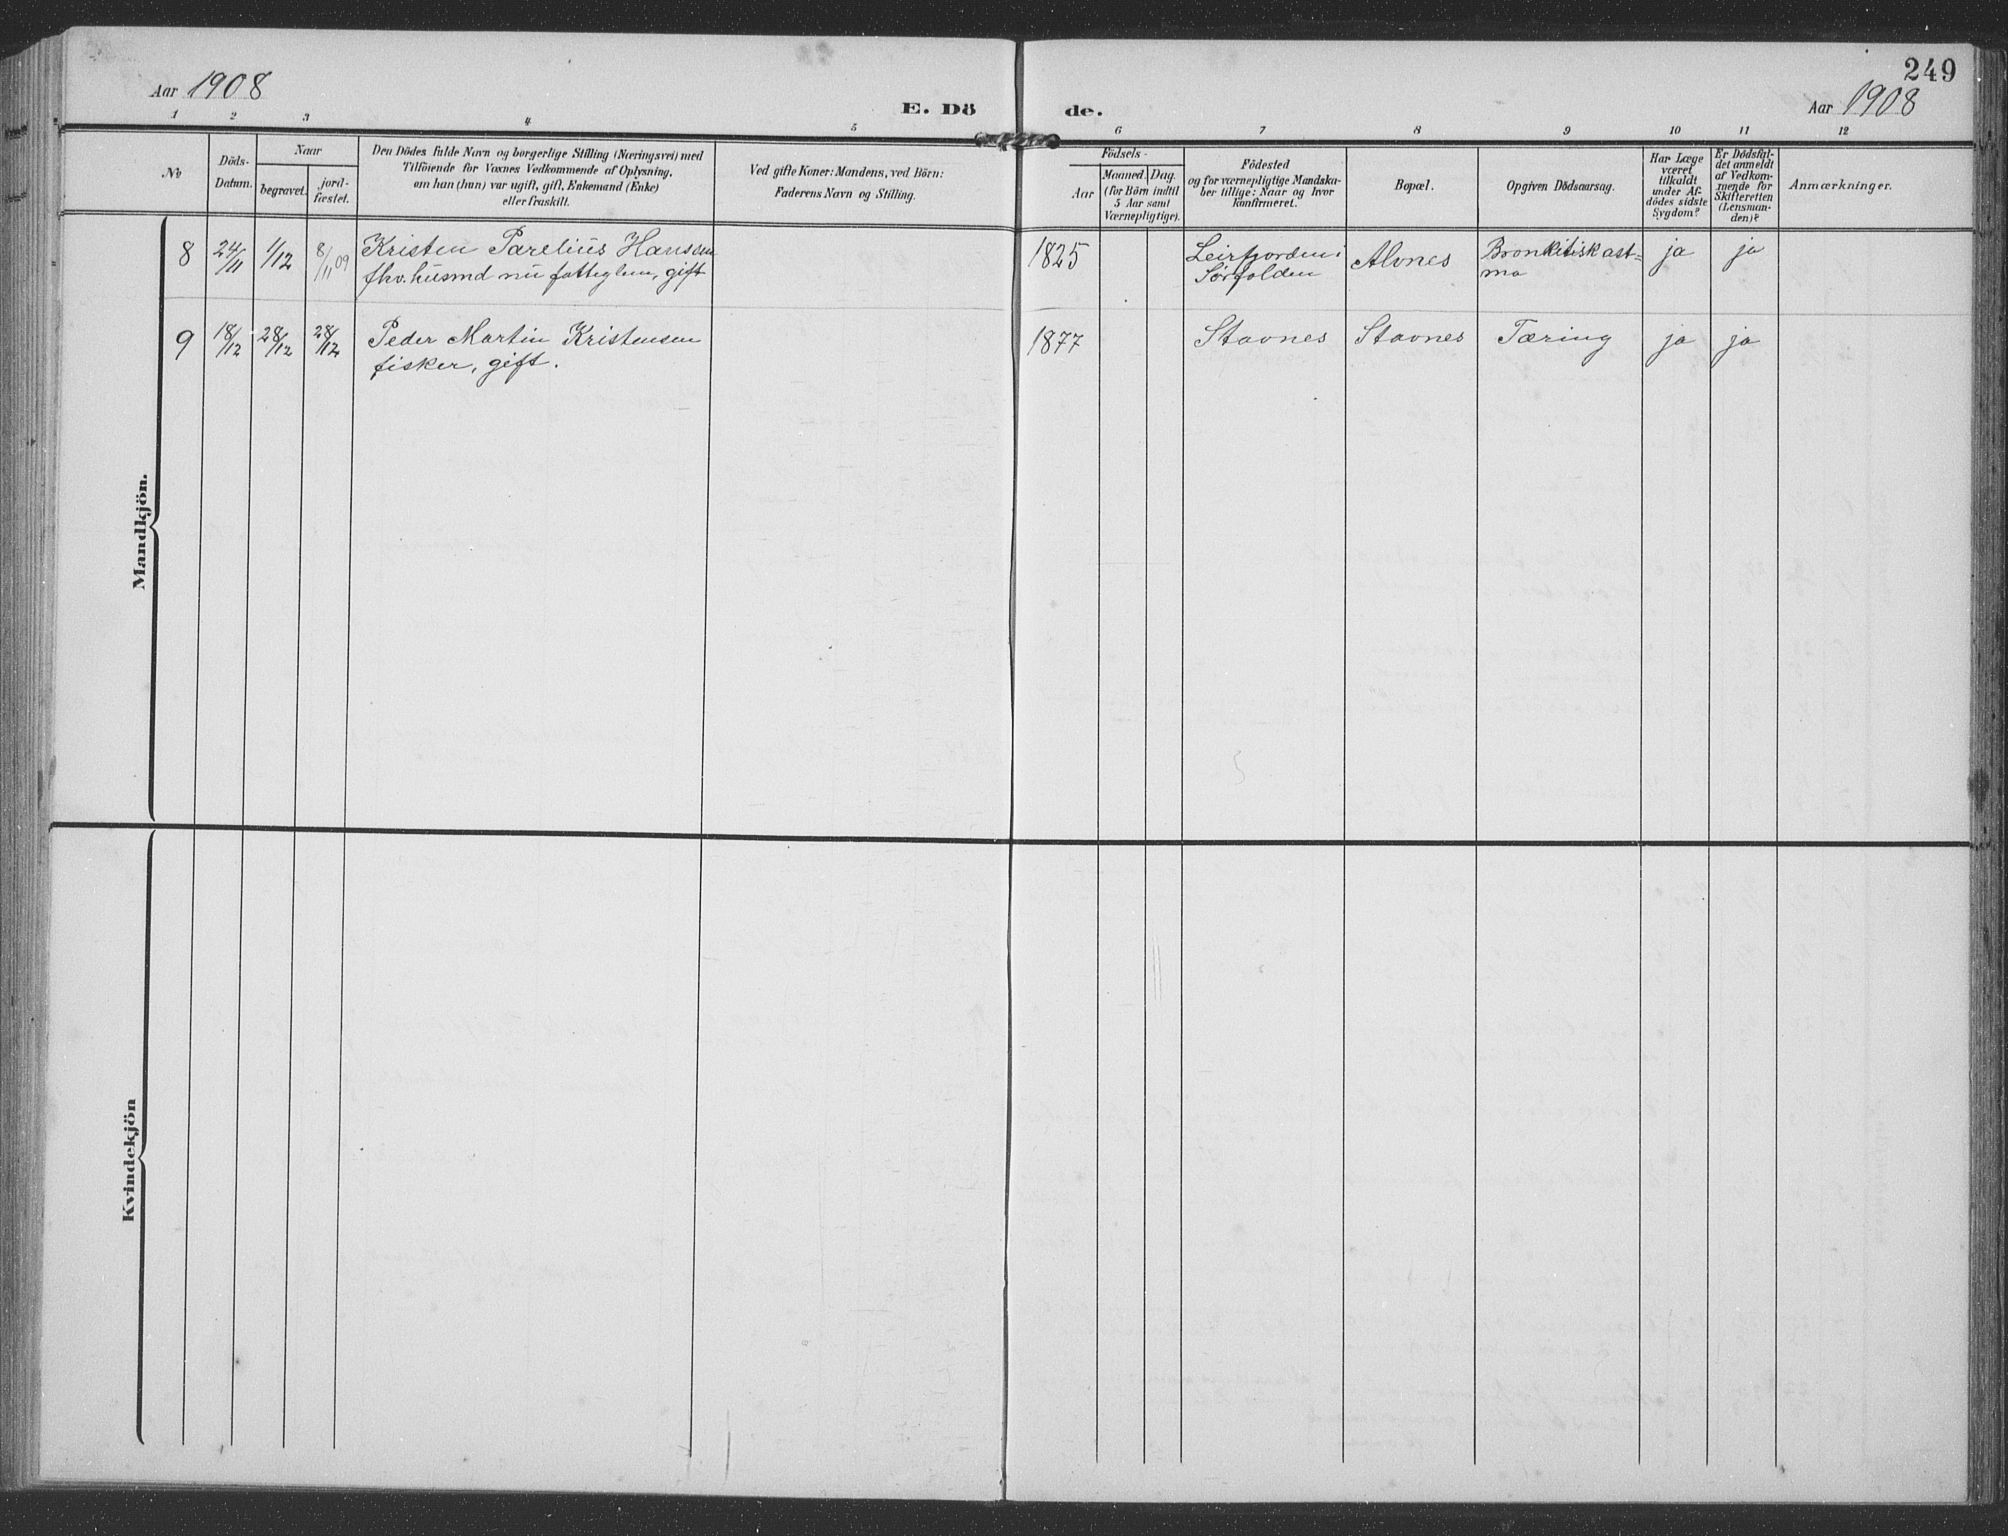 249
Aar 1908
E. Dö de.
Aar 1908
1 2 3 4 5 6 7 8 9 10 11 12
No
Döds-
Datum.
Naar
begravet.
jord-
fæstet.
Den Dödes fulde Navn og borgerlige Stilling (Næringsvei) med
Tilföiende for Voxnes Vedkommende af Oplysning,
om han (hun) var ugift, gift, Enkemand (Enke)
eller fraskilt.
Ved gifte Koner: Mandens, ved Börn:
Faderens Navn og Stilling.
Födsels-
Aar
Maaned. Dag.
(for Börn indtil
5 Aar samt
Værnepligtige).
Födested
og for værnepligtige Mandska-
ber tillige: Naar og hvor
konfirmeret.
Bopæl.
Opgiven Dödsaarsag.
Har Læge
været
tilkaldt
under Af-
dödes sidste
Sygdom?
Er Dödsfal-
det anmeldt
af Vedkom-
mende for
Skifteretten
(Lensman-
den)?
Anmærkninger.
Mandkjön.
8 24/11 1/12 8/11 09 Kristen Parelius Hanssen 1825 Leirfjorden i Alvnes Bronkitisk ast= ja ja
fhv. husmd nu fattiglem, gift Sørfolden ma
9 18/12 28/12 28/12 Peder Martin Kristensen 1877 Stavnes Stavnes Tæring ja ja
fisker, gift.
Kvindekjön